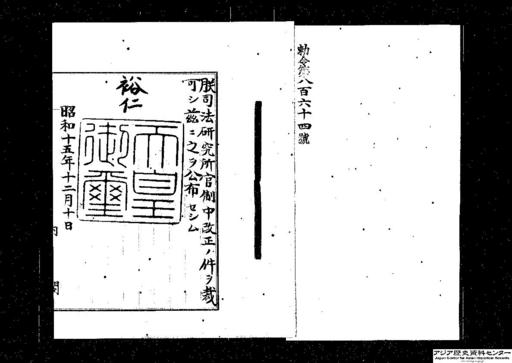 勅令第八百六十四號
朕司法研究所官制中改正ノ件ヲ裁
可シ茲ニ之ヲ公布セシム
裕仁
天皇御璽
昭和十五年十二月十日
内閣
アジア歴史資料センター
Japan Center for Asian Historical Records